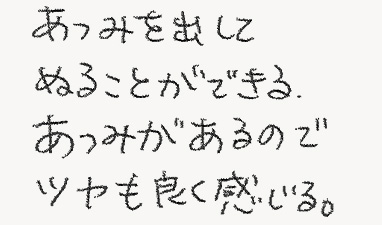 あつみを出して
ぬることができる.
あつみがあるので
ツヤも良く感じる。